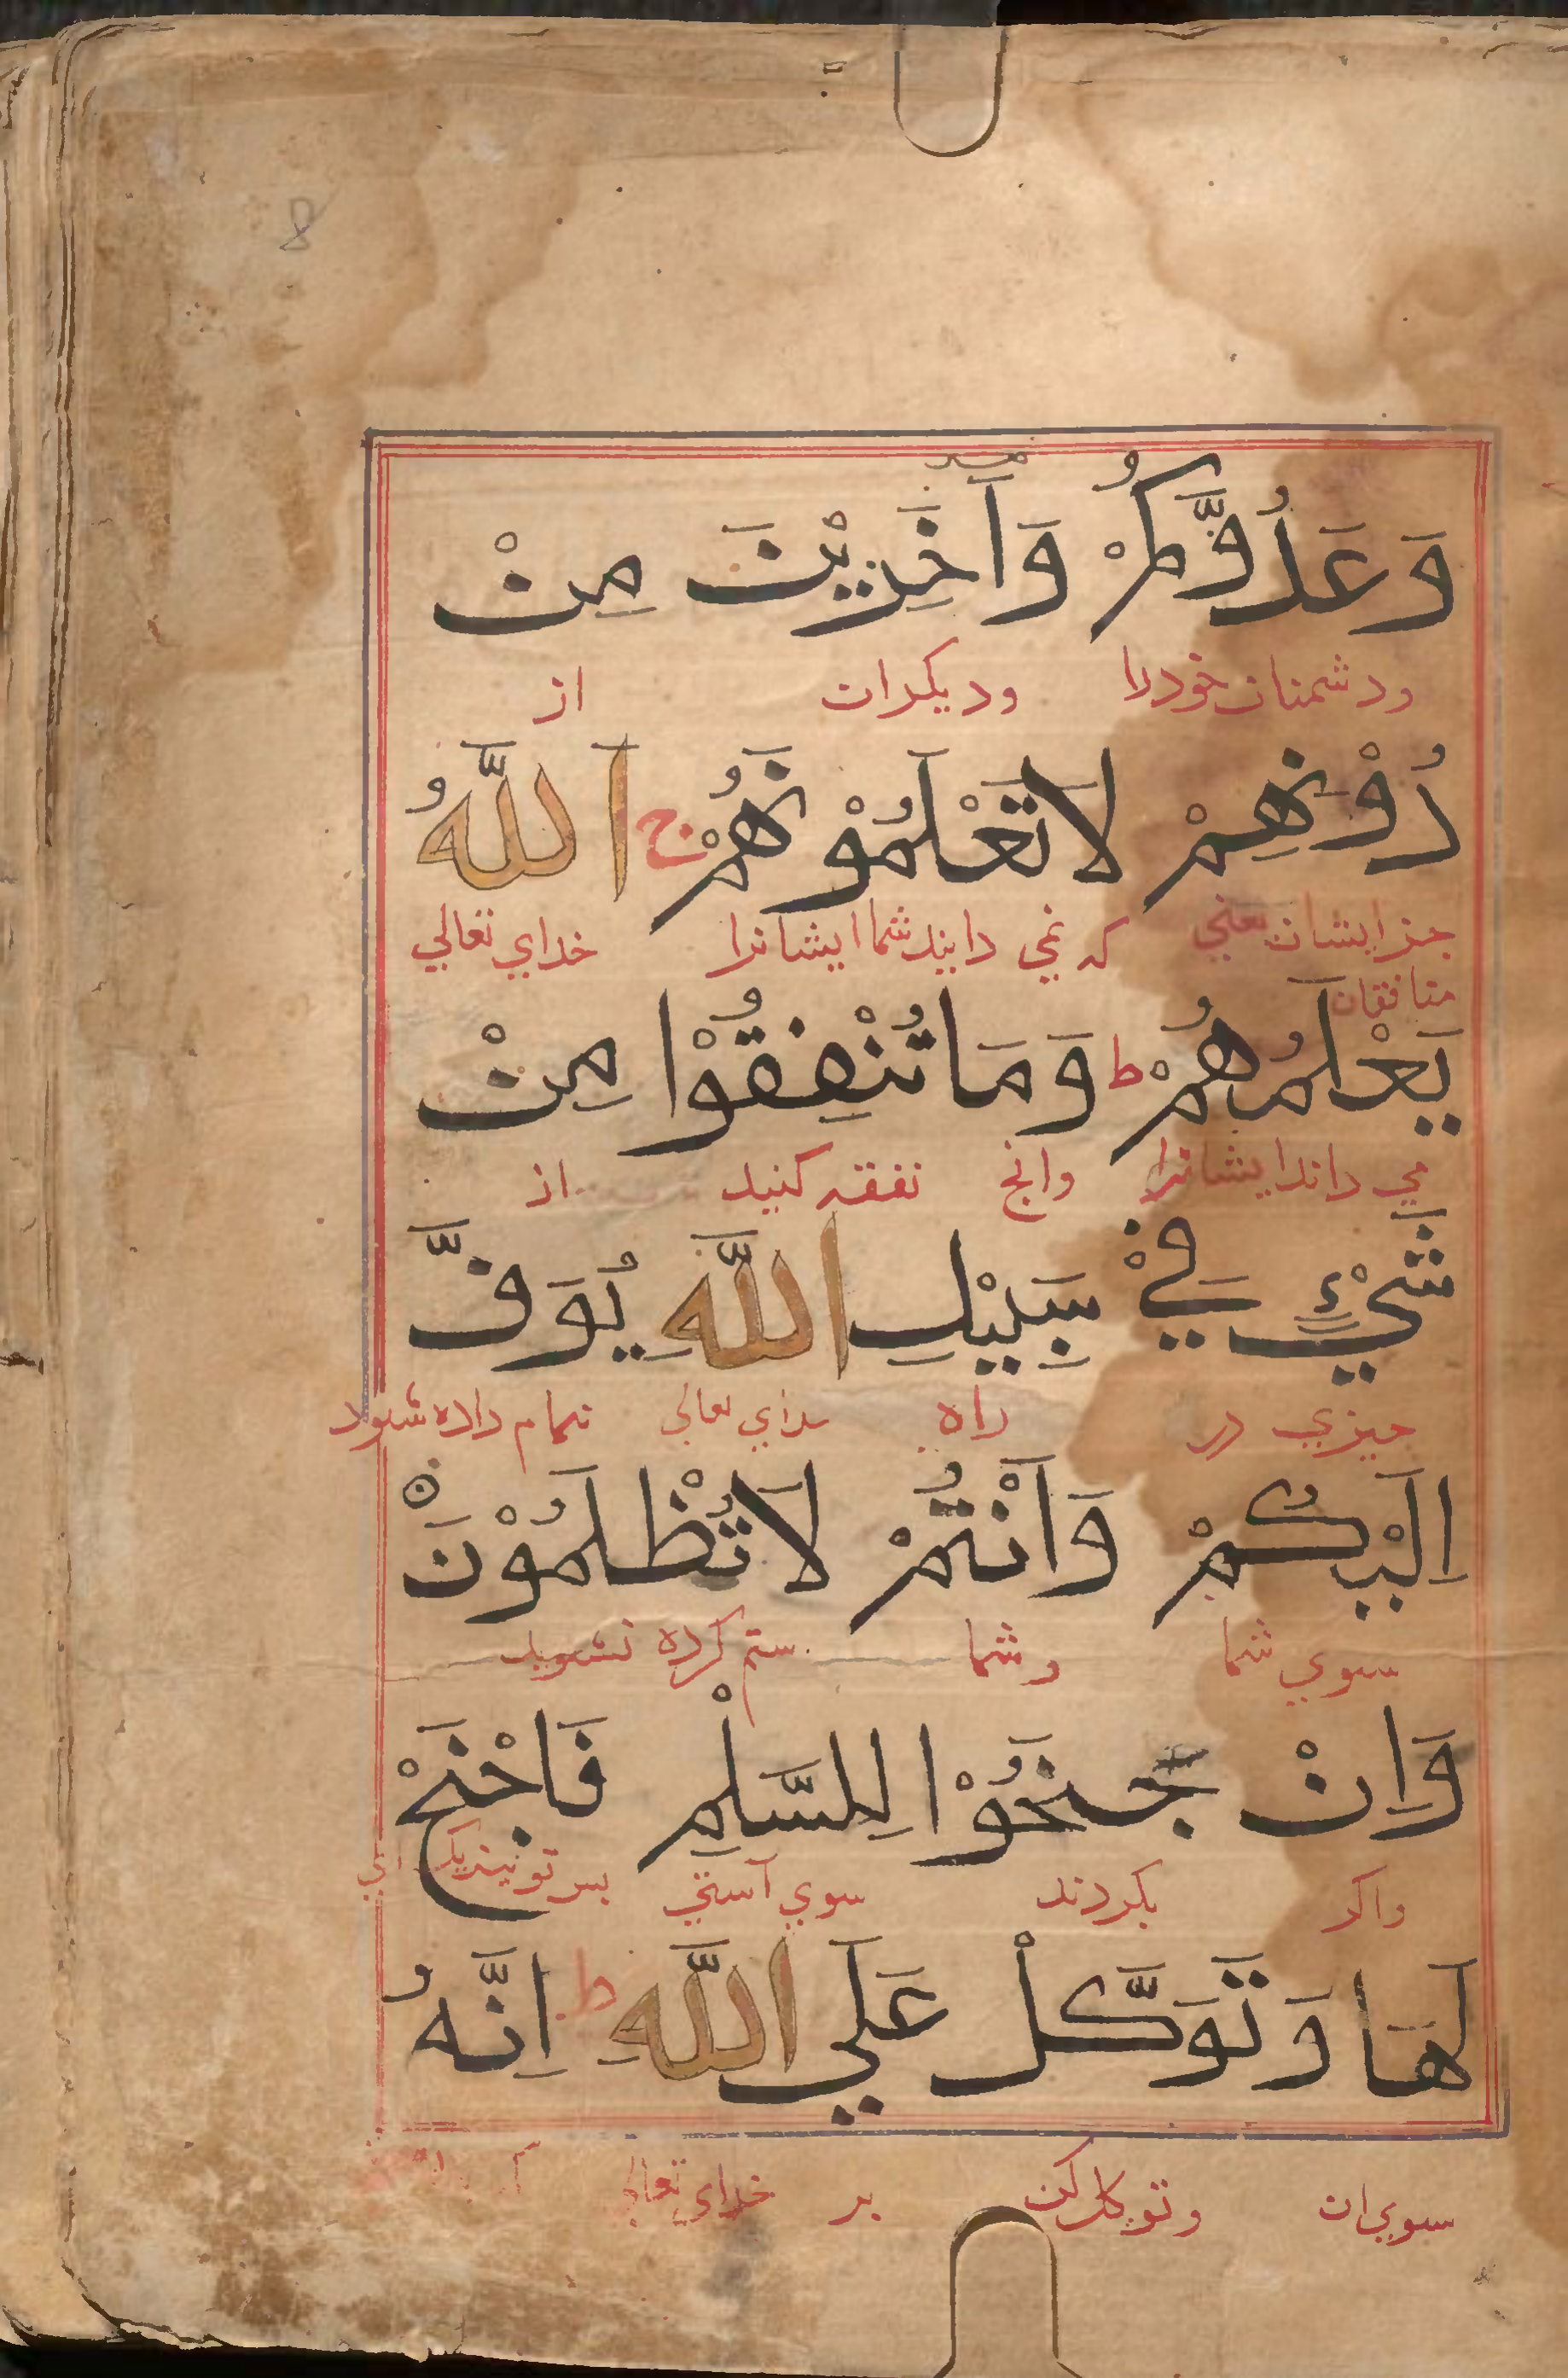 8
وَعَدُوَّكُمْ وَآخَرِيْنَ مِنْ
ودشمنان خودرا وديكران از
دُوْنِهِمْ لَا تَعْلَمُوْنَهُمْ ج اَللّٰهُ
جز ايشان يعني كه نمي دانيد شما ايشانرا خداي تعالي
منافقان
يَعْلَمُهُمْ ط وَمَا تُنْفِقُوْا مِنْ
مي داند ايشانرا وانچ نفقه كنيد از
شَيْءٍ فِيْ سَبِيْلِ اللّٰهِ يُوَفَّ
چيزي در راه خداي تعالي تمام داده شود
اِلَيْكُمْ وَاَنْتُمْ لَا تُظْلَمُوْنَ
سوي شما وشما ستم كرده نشويد
وَاِنْ جَنَحُوْا لِلسَّلْمِ فَاجْنَحْ
واكر بكردند سوي آستي پس تو نيز
لَهَا وَتَوَكَّلْ عَلَي اللّٰهِ ط اِنَّهُ
سوي ان وتوكل كن بر خداي تعالي